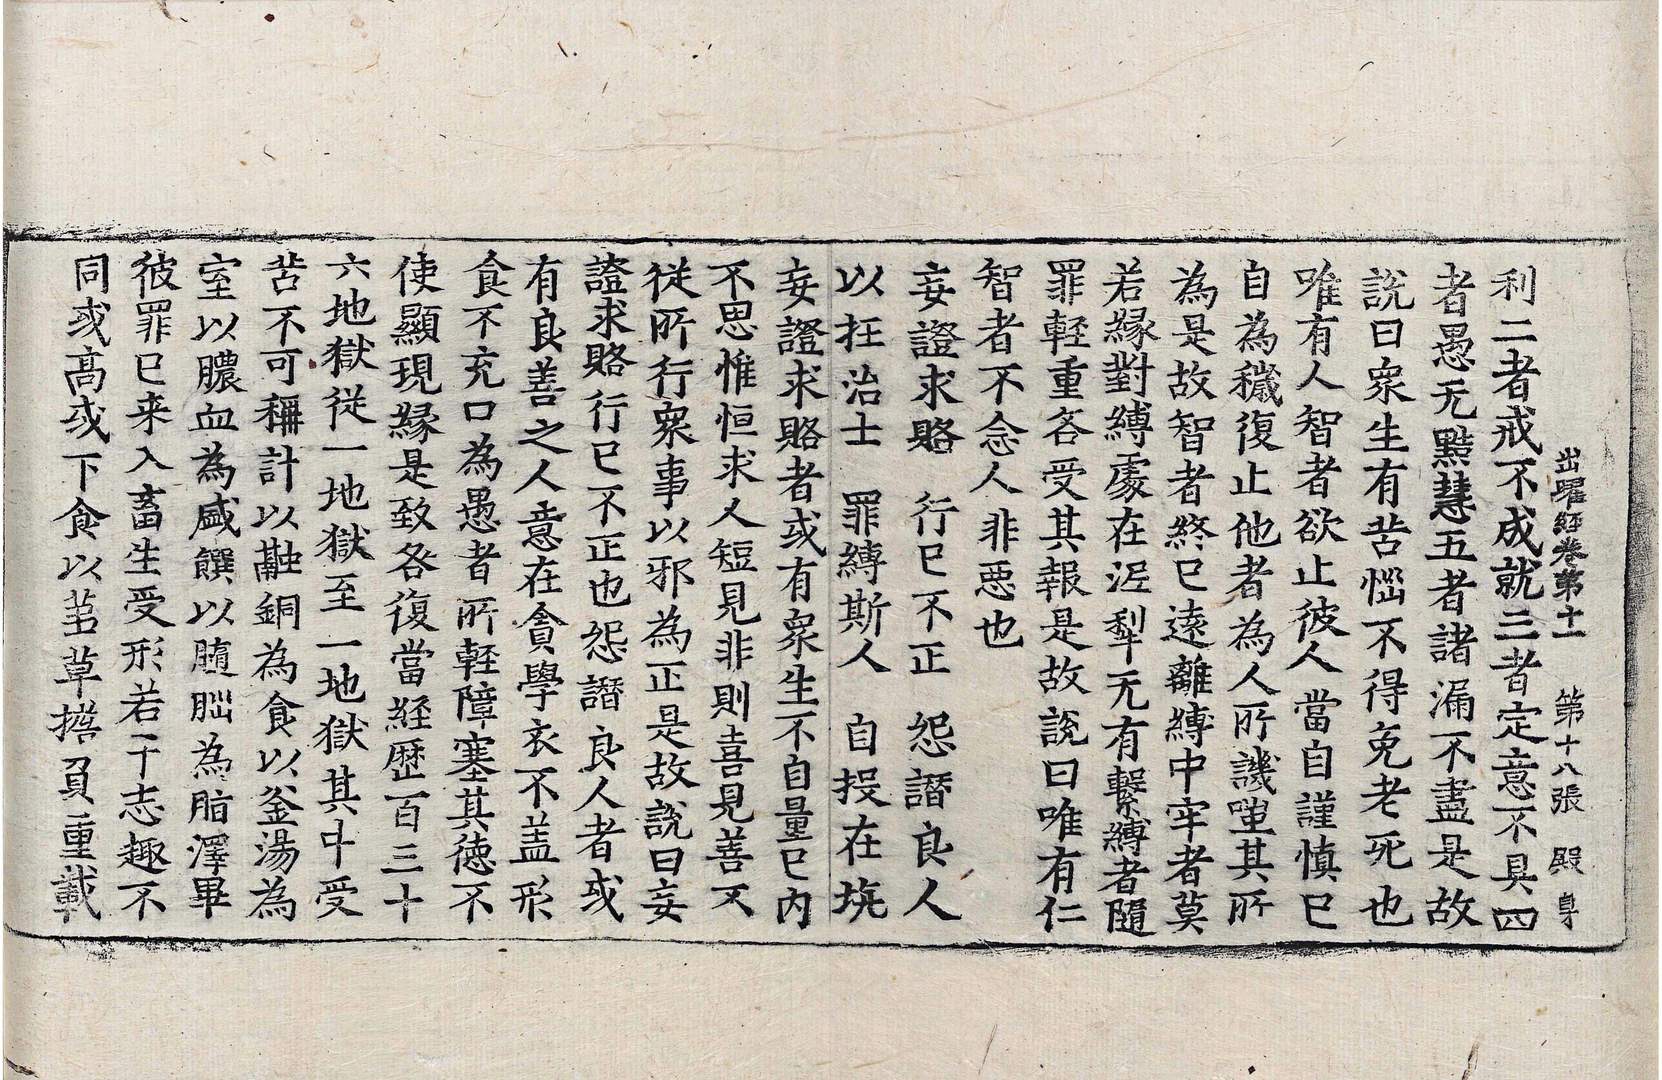 出曜經卷第十一 第十八張 殿 身
利二者戒不成就三者定意不具四
者愚无黠慧五者諸漏不盡是故
說曰衆生有苦惱不得免老死也
唯有人智者欲止彼人當自謹慎已
自為穢復止他者為人所譏嗤其所
為是故智者終已遠離縛中牢者莫
若縁對縛處在泥犁无有繫縛者隨
罪輕重各受其報是故說曰唯有仁
智者不念人非惡也
妄證求賂 行已不正 怨譖良人
以抂治士 罪縛斯人 自投在坑
妄證求賂者或有衆生不自量已内
不思惟恒求人短見非則喜見善不
從所行衆事以邪為正是故說曰妄
證求賂行已不正也怨譖良人者或
有良善之人意在貪學衣不盖形
食不充口為愚者所軽障塞其徳不
使顯現縁是致各復當経歴百三十
六地獄從一地獄至一地獄其中受
苦不可稱計以融銅為食以釜湯為
室以膿血為盛饌以髓腦為脂澤畢
彼罪已来入畜生受形若干志趣不
同或髙或下食以蒭草搭負重載